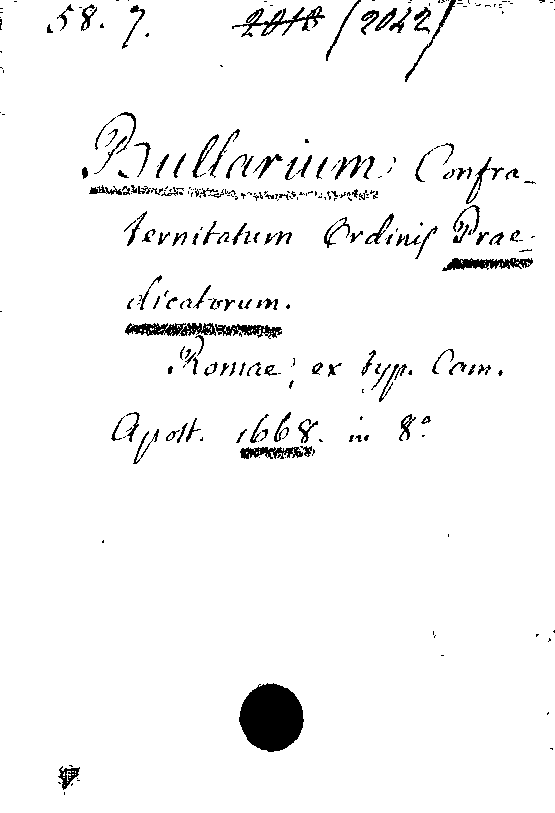 58. 7. 2018 (2042)
Bullarium Confra-
ternitatum Ordinis Prae-
dicatorum.
Romae, ex typ. Cam.
Apost. 1668. in 8°